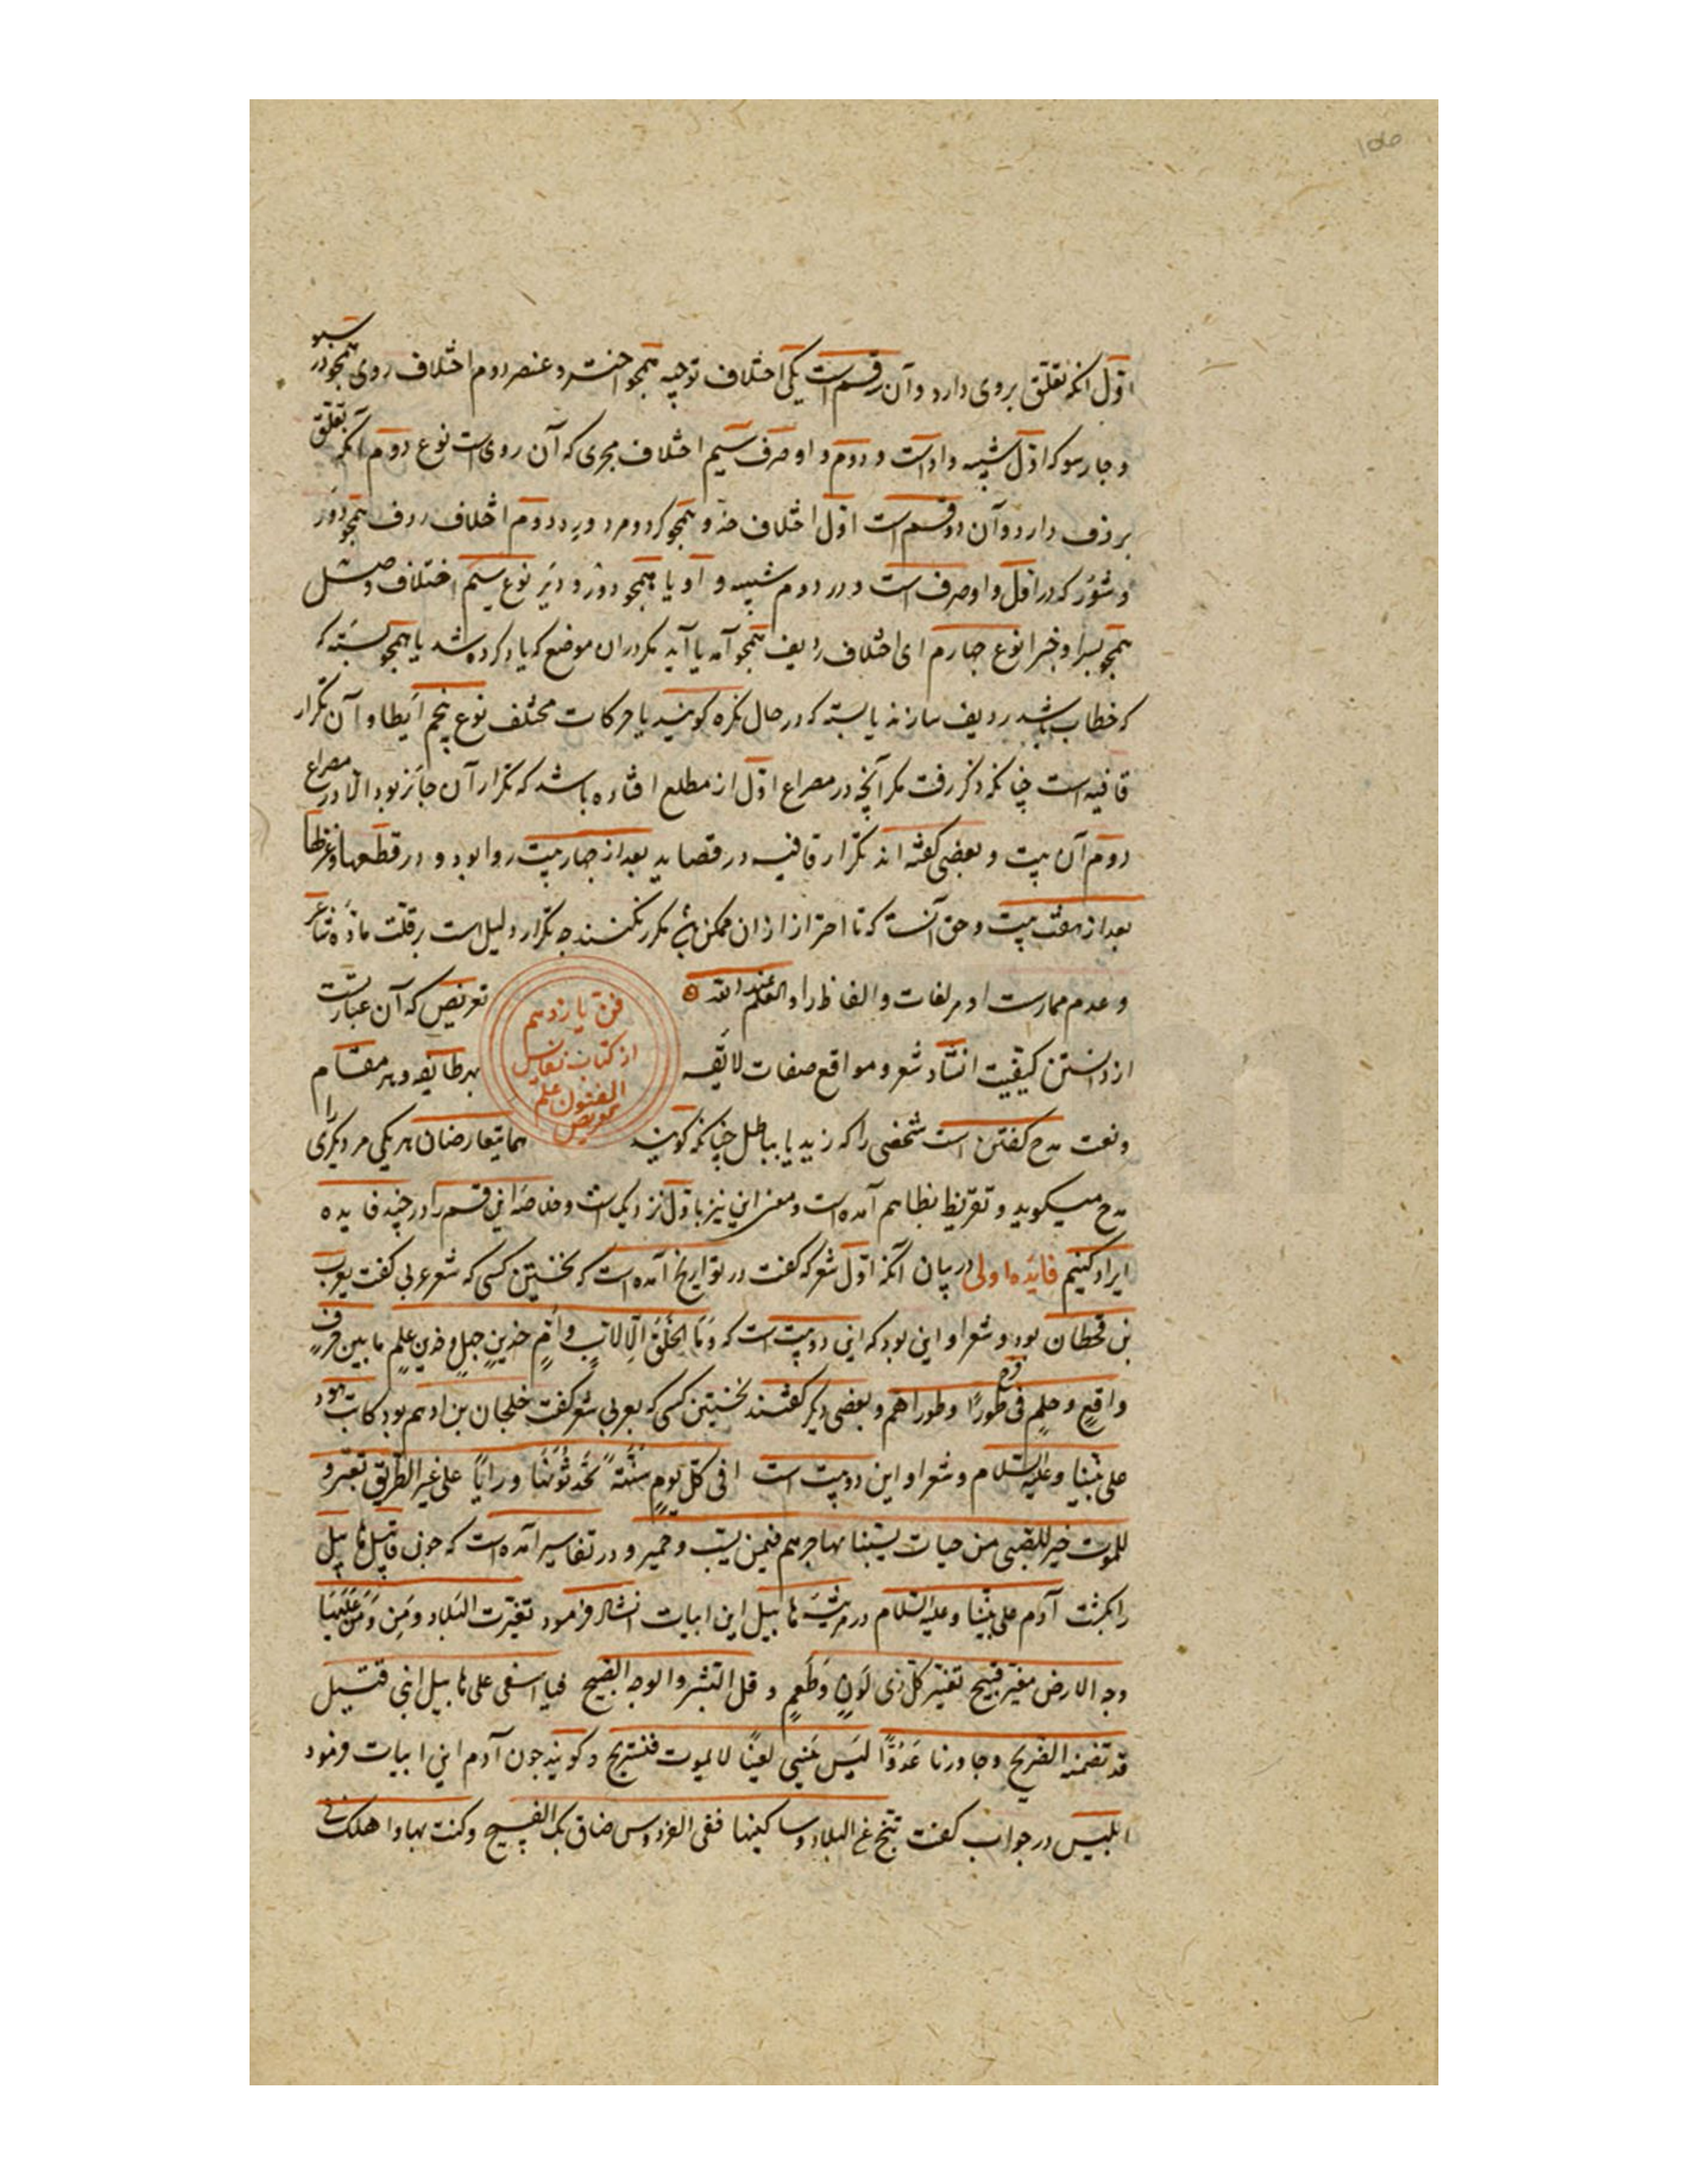 اوّل آنکه تعلّق بروی دارد و آن قسم است یکی اختلاف توجیه همچو اختر و عنصر دوم اختلاف روی همچو در سبو
و چارسو که اوّل شبیه واو است و دوم واو صرف سیم اختلاف مجری که آن روی است نوع دوم آنکه تعلّق
بردف دارد و آن دو قسم است اوّل اختلاف حذو همچو کرد و مرد دوم اختلاف ردف همچو دَور
و شُور که در اوّل واو صرف است و در دوم شبیه واو یا همچو دور و دَیر نوع سیم اختلاف وصل
همچو بسرا و خبرا نوع چهارم ای اختلاف ردیف همچو آمد یا آید مکر دران موضع که یاد کرده شد یا همچو بسته که
که خطاب باشد ردیف سازند یا بسته که در حال نکره کویند یا حرکات مختلف نوع پنجم ایطا و آن تکرار
قافیه است چنانکه ذکر رفت مکر آنچه در مصراع اوّل از مطلع افتاده باشد که تکرار آن جائز بود الّا در مصراع
دوم آن بیت و بعضی کفته اند تکرار قافیه در قصاید بعد از چهار بیت روا بود و در قطعها و غزلها
بعد از هفت بیت و حق آنست که تا احتراز ازان ممکن باشد مکرر نکنند چه تکرار دلیل است بر قلّت مادّه شاعر
و عدم ممارست او بر لغات و الفاظ و العلم عند الله
فن یازدهم
از کتاب نفایس
الفنون علم
تعریض
تعریض که آن عبارتست
از دانستن کیفیت انشاد شعر و مواقع صفات لائقه بهر طایفه و هر مقام
و نعت مدح کفتن است شخصی را که زید یا بباطل چنانکه کویند هما یتعارضان هر یکی مر دیکری را
مدح میکوید و تقریظ بظا هم آمده است و معنی این نیز باوّل نزدیک است و خلاصه این قسم را در چند فایده
ایراد کنیم فایده اولی در بیان آنکه اوّل شعر که کفت در تواریخ آمده است که نخستین کسی که شعر عربی کفت یعرب
بن قحطان بود و شعر او این بود که این دو بیت است که وَمَا الخَلق الّا لابٍ و اُمٍ خدین جهلٍ و خدین علمٍ ما بین
واقعٍ و حلمٍ فی طورًا و طورا هم و بعضی دیکر کفتند نخستین کسی که بعربی شعر کفت خلجان بن ادهم بود کاتب هود
علی نبیّنا و علیه السّلام و شعر او این دو بیت است افی کلّ یومٍ سُنّةً تُحدثونها و رایًا علی غیر الطریق تعبّر و
للموت خیر للفتی من حیات یسبنا بها جرهم فیمن یسب و حمیر و در تفاسیر آمده است که چون قابیل هابیل
را بکشت آدم علی نبیّنا و علیه السّلام در مرثیه هابیل این ابیات انشاد فرمود تغیّرت البلاد و مَن عَلَیها
وجه الارض مغبّر قبیح تغیّر کلّ ذی لَونٍ وَ طَعمٍ و قل البشر و الوجه الفصیح فیا اسفی علی هابیل ابنی قتیل
قد تضمنه الضریح و جاورنا عَدُوًّا لَیس عَنّی لعینًا لا یموت فنستریح و کویند چون آدم این ابیات فرمود
ابلیس در جواب کفت تنحّ عن البلاد و ساکنیها ففی الفردوس ضاق بک الفسیح و کنت بها و اهلک فی